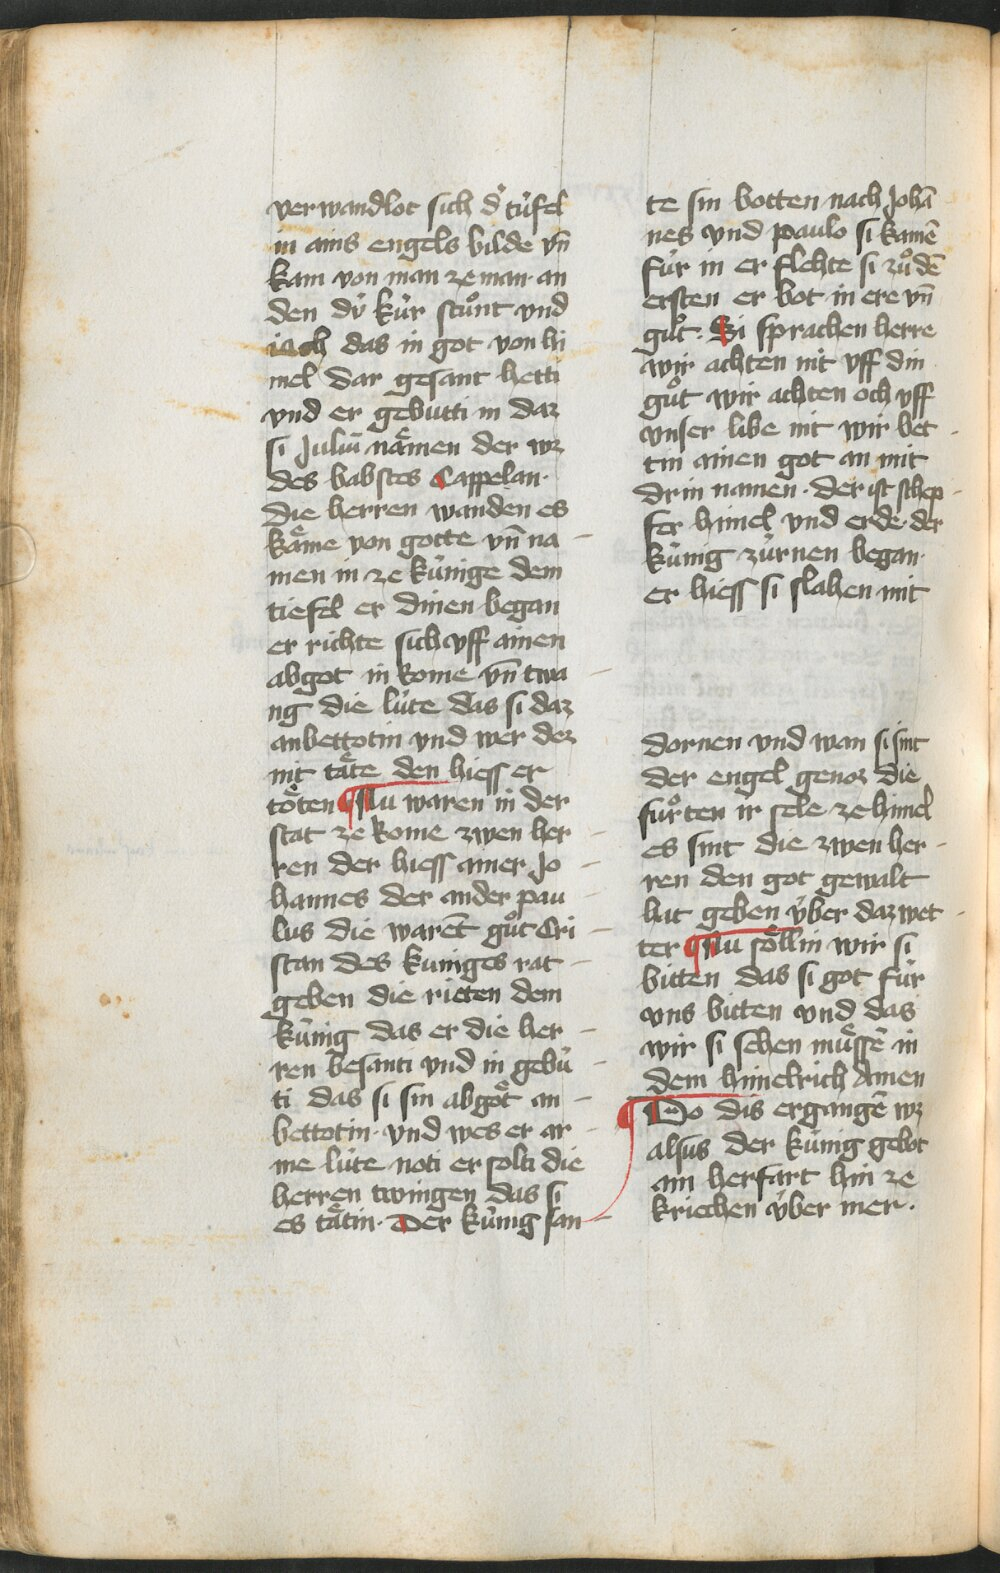 verwandlot sich d͛ túfel
in ains engels bilde vn̄
kam von man ze man an
den dú kúr stůnt vnd
iach das in got von hi
mel dar gesant hetti
vnd er gebutti in daz
si Juliū nämen der wz
des babstes Cappelan·
die herren wanden es
käme von gotte vn̄ na
men in ze kúnige dem
tiefel er dinen began
er richte sich vff ainen
abgot in Rome vn̄ twa
ng die lúte das si daz
anbettotin vnd wer dez
nit täte den hiess er
töten ¶ Nu waren in der
stat ze Rome zwen her
ren der hiess ainer Jo
hannes der ander pau
lus die warēt gůt Cri
stan des kuniges rat
geben die rieten dem
kúnig das er die her
ren besanti vnd in gebú
ti das si sin abgöt an
bettotin· vnd wes er ar
me lúte noti er solti die
herren twingen das si
es tätin· Der kúnig san
te sin botten nach Johā
nes vnd paulo si kamē
fúr in er flehte si zů dē
ersten er bot in ere vn̄
gůt· Si sprachen herre
wir achten nit vff din
gůt wir achten och vff
vnser libe nit wir bet
tin ainen got an mit
drin namen· der ist schep
fer himel vnd erde· der
kúnig zúrnen began·
er hiess si slahen mit
dornen vnd wan si sint
der engel genoz die
fůrten ir sele ze himel
es sint die zwen her
ren den got gewalt
hat geben v́ber daz wet
ter ¶ Nu söllin wir si
bitten das si got fúr
vns bitten vnd das
wir si sehen müssē in
dem himelrich Amen
¶ Do dis ergangē wz
alsus der kúnig gebot
ain herfart hin ze
kriechen v́ber mer·